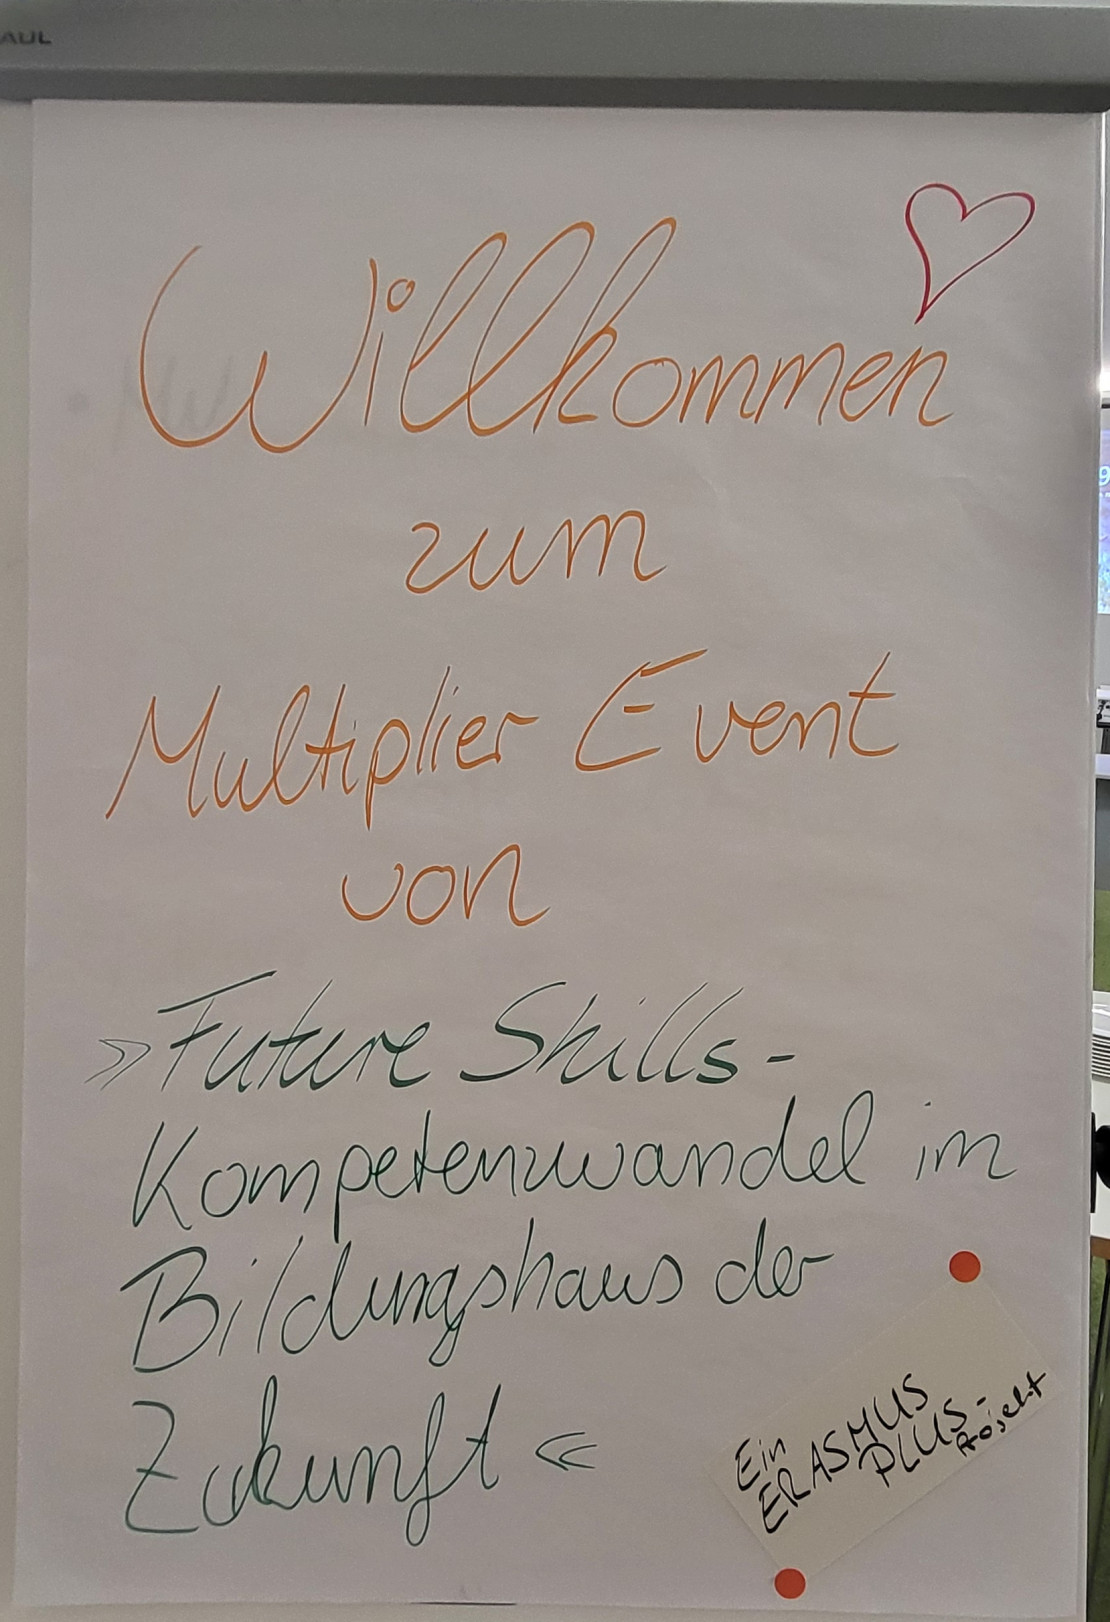 AUL
Willkommen
zum
Multiplier Event
von
»Future Skills-
Kompetenzwandel im
Bildungshaus der
Zukunft«
Ein
ERASMUS
PLUS-
Projekt